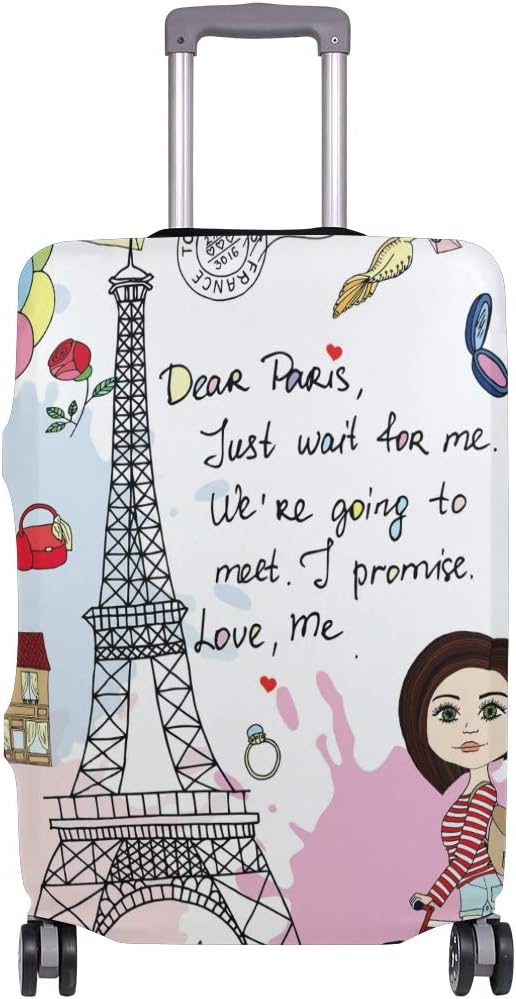 TO
3016
FRANCE
Dear Paris,
Just wait for me.
We're going to
meet. I promise.
Love, Me.